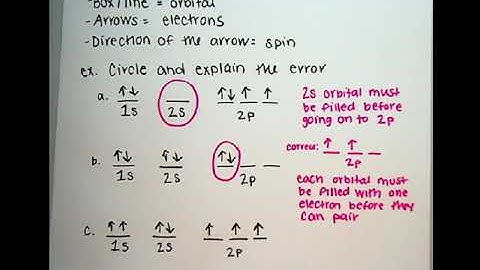 -Box/line = orbital
-Arrows = electrons
-Direction of the arrow= spin
ex. Circle and explain the error
a. ↑↓ __ ↑↓ ↑ ↑
1s 2s 2p
2s orbital must
be filled before
going on to 2p
b. ↑↓ ↑↓ ↑↓ __ __
1s 2s 2p
correct: ↑ ↑ __
2p
each orbital must
be filled with one
electron before they
can pair
c. ↑↑ ↑↓ ↑ ↑ ↑
1s 2s 2p